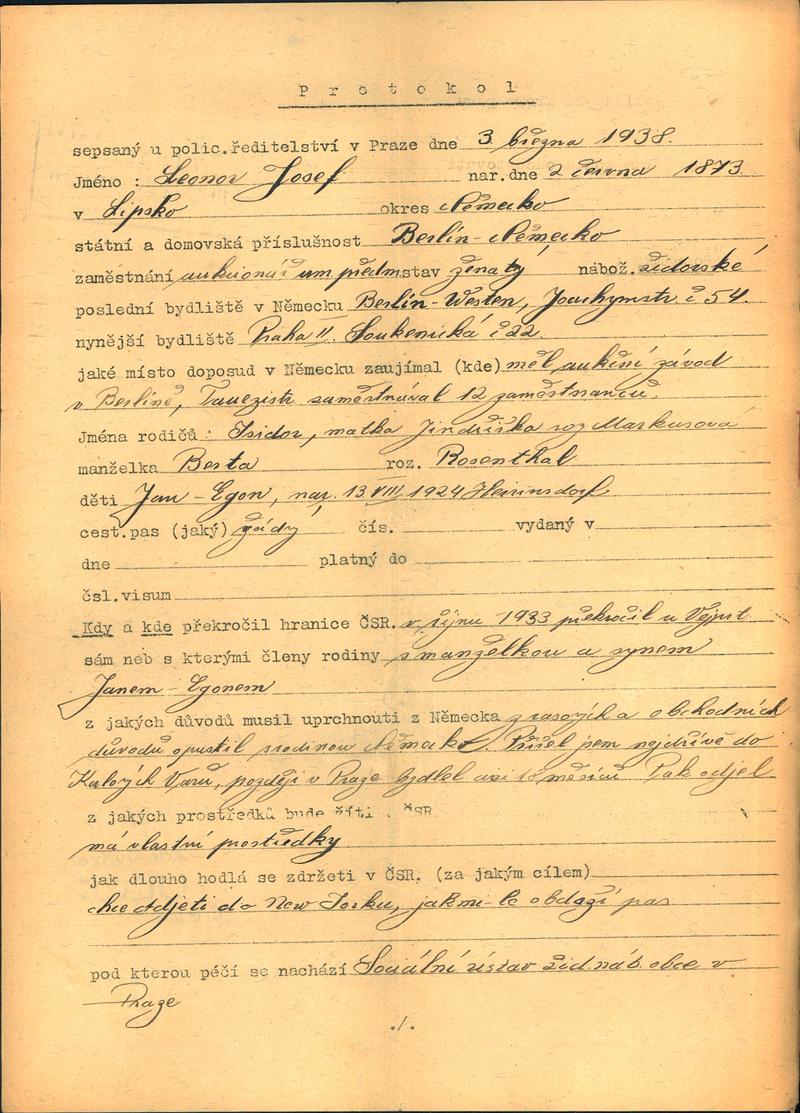 Protokol
sepsaný u polic.ředitelství v Praze dne 3 března 1938.
Jméno : Leonor Josef nar.dne 2 června 1873
v Lipsko okres Německo
státní a domovská příslušnost Berlín - Německo
zaměstnání aukcionář um předm stav ženatý nábož. židovské
poslední bydliště v Německu Berlín-Westen, Joachymstr. č 54.
nynější bydliště Praha II. Soukenická č 22.
jaké místo doposud v Německu zaujímal (kde) měl aukční závod
v Berlíně, zaměstnával 12 zaměstnanců.
Jména rodičů : Isidor, matka Jindřiška roz Markusová
manželka Berta roz. Rosenthal
děti Jan - Egon, nar. 13 VIII 1924
cest.pas (jaký) žádný čís. vydaný v
dne platný do
čsl.visum
Kdy a kde překročil hranice ČSR. v říjnu 1933 překročil u Vejprt
sám neb s kterými členy rodiny s manželkou a synem
Janem - Egonem
z jakých důvodů musil uprchnouti z Německa z rasových a obchodních
důvodů opustil s rodinou Německo. Přišel jsem nejdříve do
Karlových Varů, později v Praze bydlel asi měsíců Pak odjel
z jakých prostředků bude žíti v ČSR
má vlastní prostředky
jak dlouho hodlá se zdržeti v ČSR. (za jakým cílem)
chce odjeti do New Yorku, jakmi-le obdrží pas
pod kterou péčí se nachází Sociální ústav žid. náb. obce v
Praze
./.